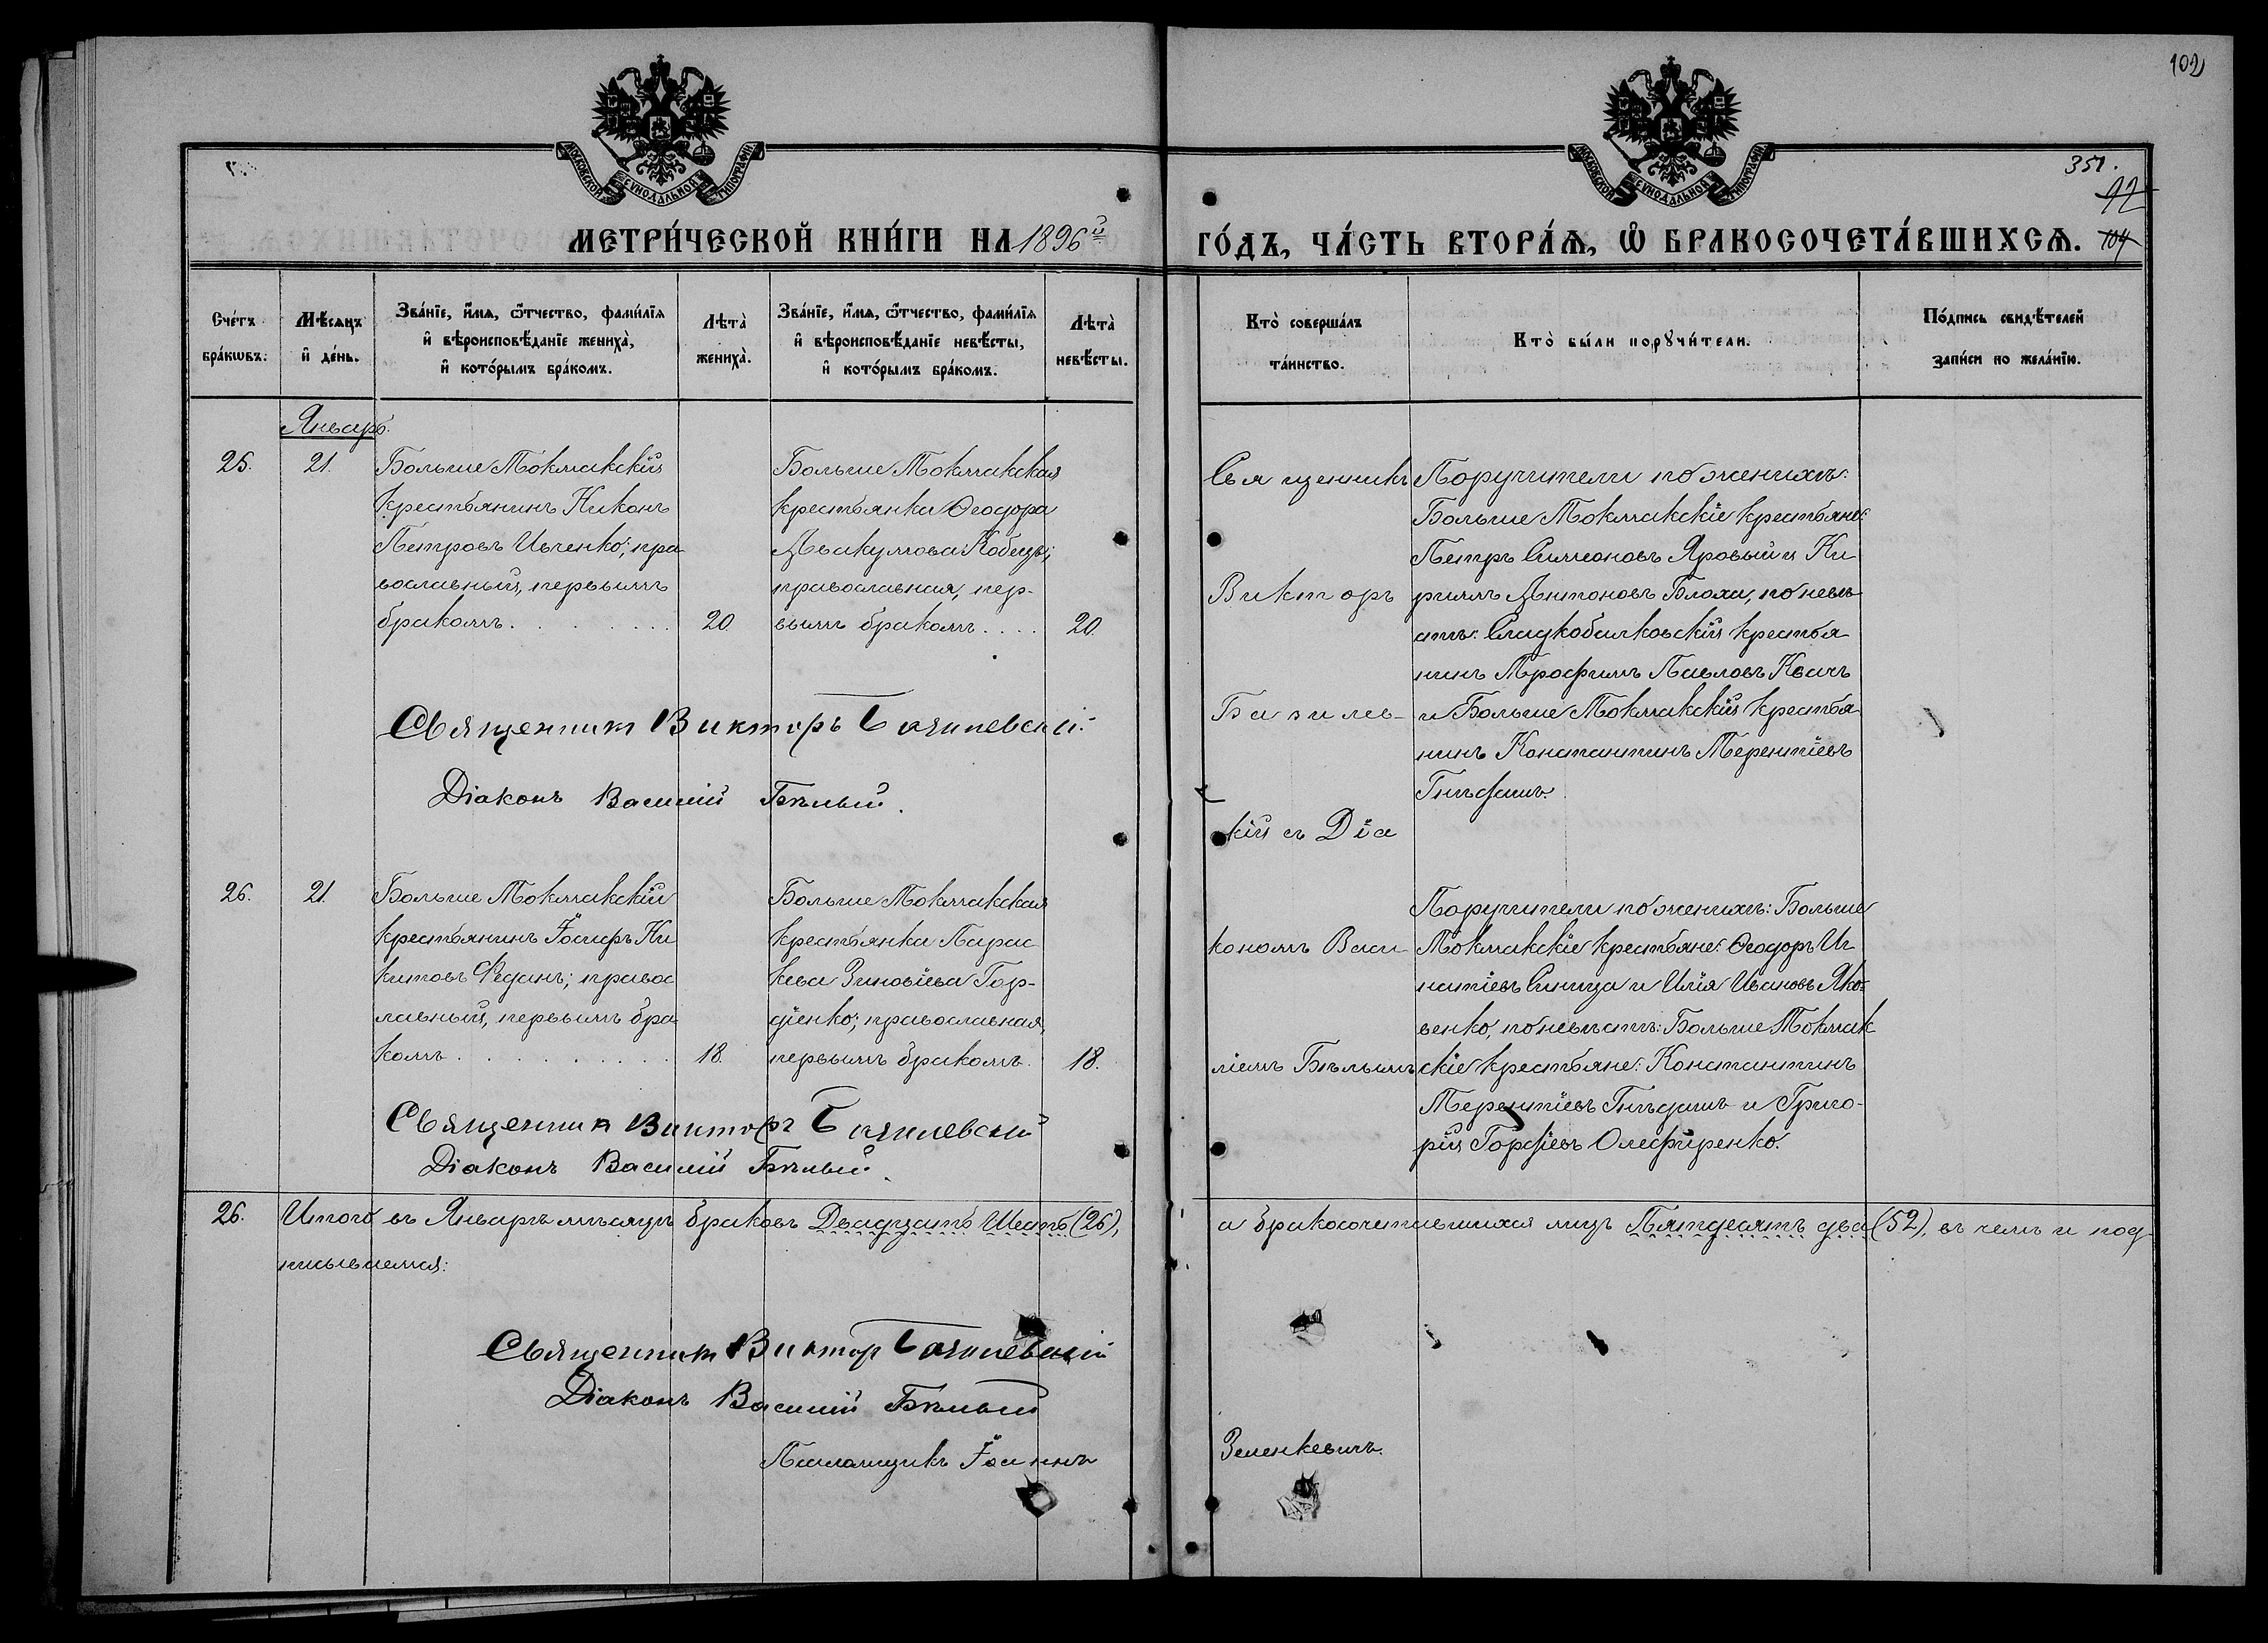 102
МОСКОВСКОЙ СѴНОДАЛЬНОЙ ТИПОГРАФІИ
МОСКОВСКОЙ СѴНОДАЛЬНОЙ ТИПОГРАФІИ
351.
12
МЕТРИ́ЧЕСКОЙ КНИ́ГИ НА 1896й ГО́ДЪ, ЧА́СТЬ ВТОРА́Ѧ, Ѿ БРАКОСОЧЕТА́ВШИХСѦ. 104
Сче́тъ бра́кѡвъ.
Мѣ́сѧцъ и҆ де́нь.
Зва́нїе, и҆́мѧ, ѻ҆́тчество, фами́лїѧ и҆ вѣроисповѣ́данїе жениха̀, и҆ кото́рымъ бра́комъ.
Лѣта̀ жениха̀.
Зва́нїе, и҆́мѧ, ѻ҆́тчество, фами́лїѧ и҆ вѣроисповѣ́данїе невѣ́сты, и҆ кото́рымъ бра́комъ.
Лѣта̀ невѣ́сты.
Кто̀ соверша́лъ та́инство.
Кто̀ бы́ли порꙋчи́тели.
По́дпись свидѣ́телей за́писи по жела́нїю.
Январь.
25.
21.
Больше Токмакскій
крестьянинъ Никонъ
Петровъ Ивченко; пра
вославный, первымъ
бракомъ. . . . . . . .
20
Больше Токмакская
крестьянка Ѳеодора
Аввакумова Кобецъ;
православная, пер-
вымъ бракомъ. . . .
20.
Священникъ
Викторъ
Базилев-
скій съ Діа
кономъ Васи
ліемъ Бѣлымъ
Поручители по женихѣ:
Больше Токмакскіе крестьяне:
Петръ Симеоновъ Яровый и Ки
риллъ Антоновъ Блоха, по невѣ
стѣ: Сладкобалковскій крестья
нинъ Трофимъ Павловъ Квачъ
и Больше Токмакскій крестья
нинъ Константинъ Терентіевъ
Гнѣдашъ.
Священникъ Викторъ Базилевскій
Діаконъ Василій Бѣлый.
26.
21.
Больше Токмакскій
крестьянинъ Іосифъ Ни
китовъ Феданъ; правос
лавный, первымъ бра
комъ. . . . . . . . . .
18.
Больше Токмакская
крестьянка Парас
кева Зиновіева Гор-
діенко; православная,
первымъ бракомъ.
18.
Поручители по женихѣ: Больше
Токмакскіе крестьяне: Ѳеодоръ Иг
натіевъ Синица и Илія Ивановъ Яко-
венко, по невѣстѣ: Больше Токмак
скіе крестьяне: Константинъ
Терентіевъ Гнѣдашъ и Григо-
рій Гордіевъ Олефиренко.
Священникъ Викторъ Базилевскій
Діаконъ Василій Бѣлый.
26. Итого въ Январѣ мѣсяцѣ браковъ Двадцать Шесть (26), а бракосочетавшихся лицъ Пятдесятъ два (52), въ чемъ и под-
писываемся:
Священникъ Викторъ Базилевскій
Діаконъ Василій Бѣлый
Псаломщикъ Іоаннъ Зеленкевичъ.